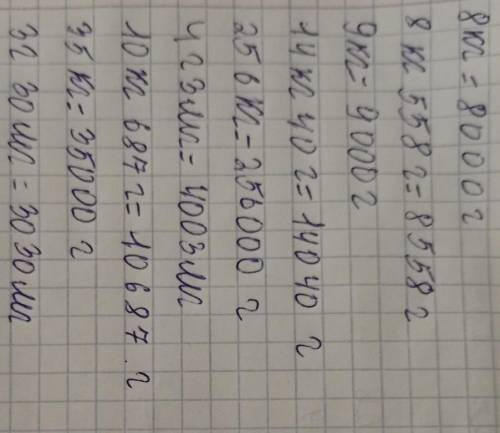 8кг = 8000г
8 кг 558 г = 8558 г
9кг = 9000г
14кг 40 г = 14040 г
256 кг = 256000 г
4г 3мг = 4003мг
10 кг 687г = 10687 г
35 кг = 35000 г
3г 30 мг = 3030мг